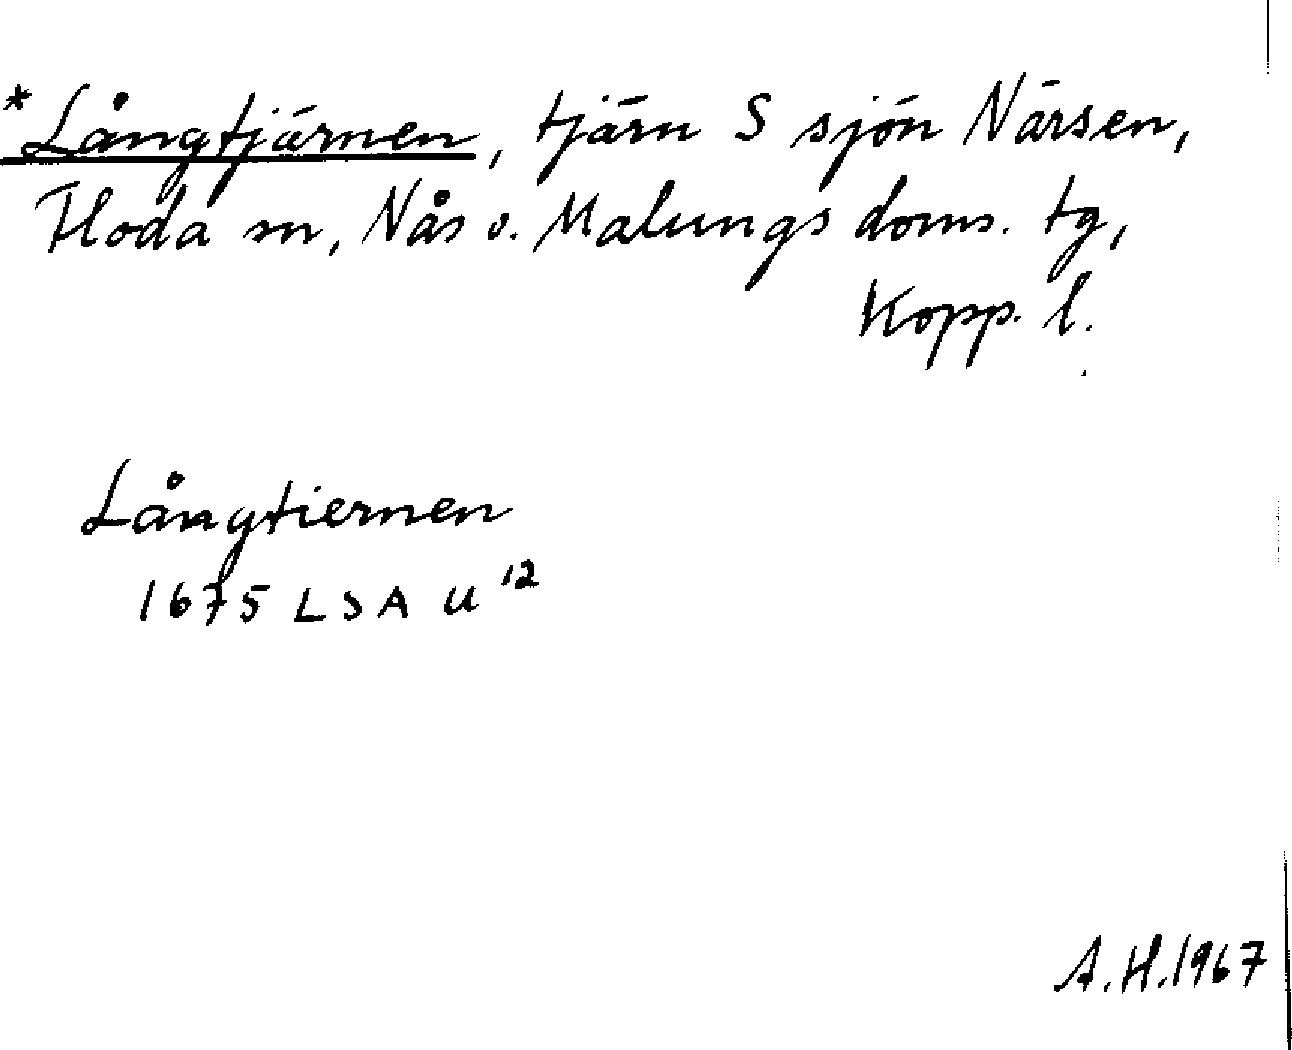 *Långtjärnen, tjärn S sjön Närsen,
Floda sn, Nås o. Malungs doms. tg,
Kopp. l.
Långtiernen
1675 LSA U¹²
A.H.1967